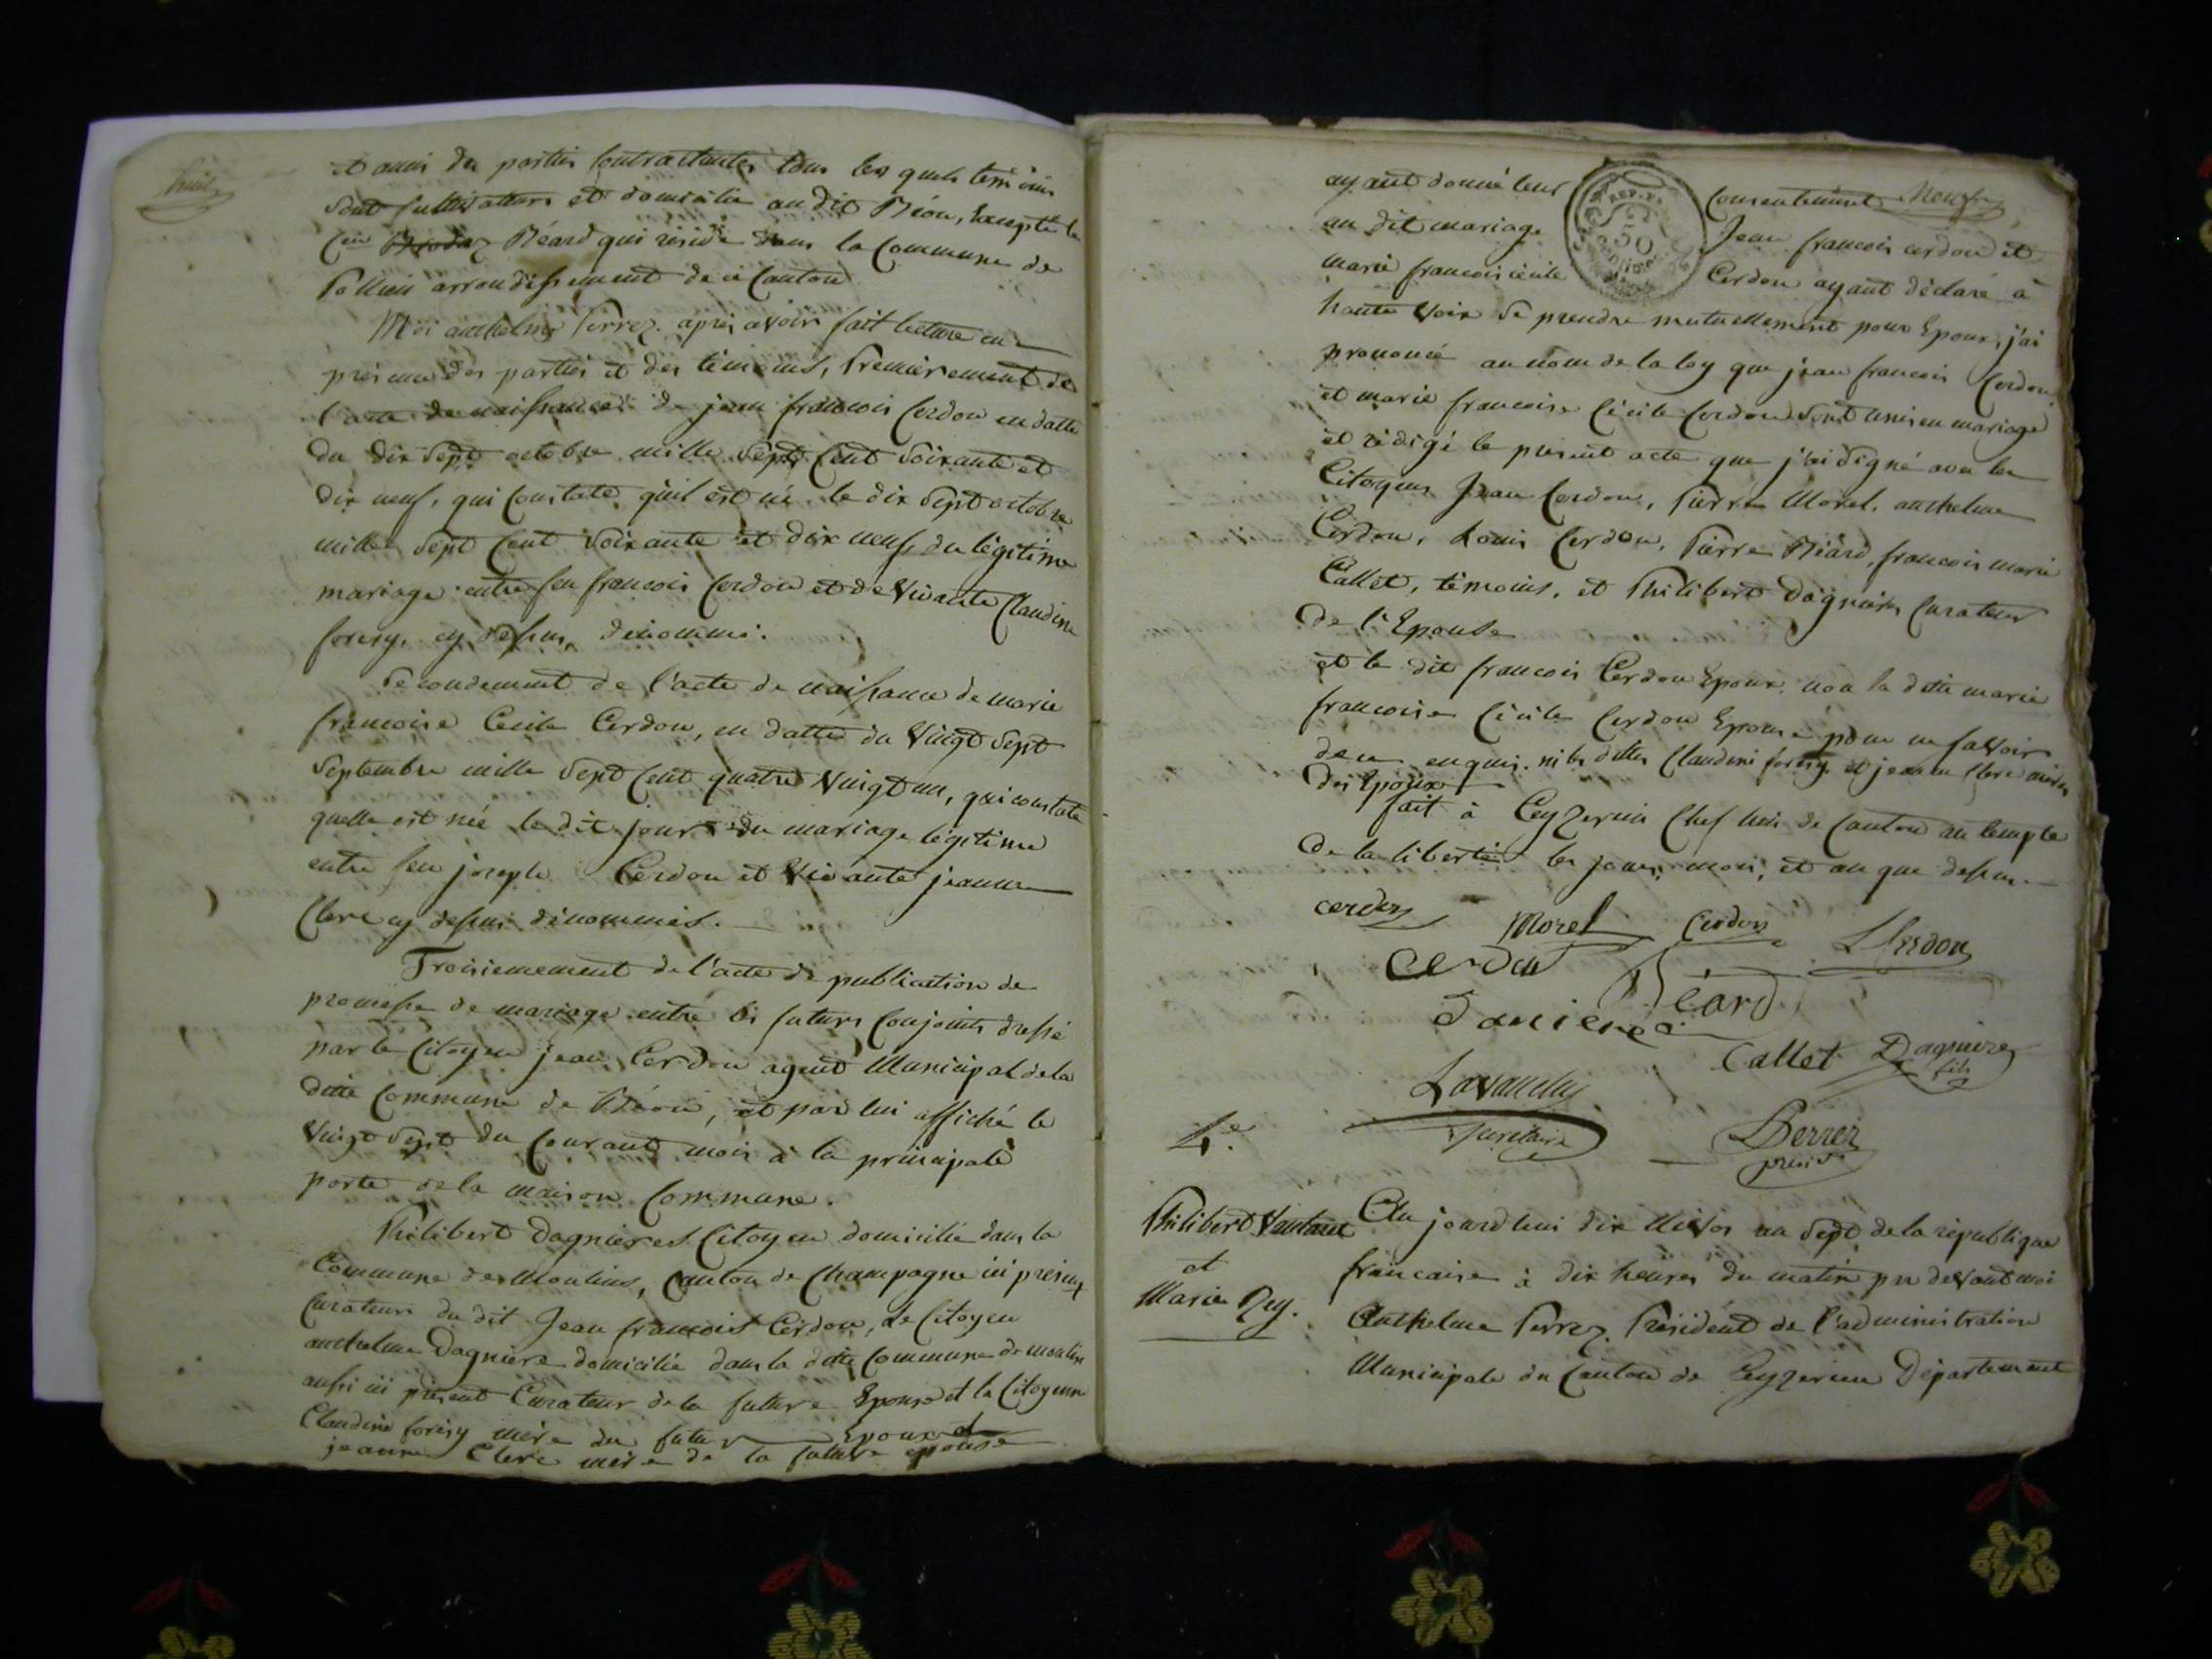 huit
et amis des parties contractantes tous les quels témoins
sont cultivateurs et domicilié au dit Béon, Excepté le
Cen Béard qui réside dans la Commune de
Pollieu arrondissement de ce Canton
Moi anthelme Perrez. apres avoir fait lecture en
presence des parties et des témoins, Premierement de
l'acte de naissance de jean francois Cerdon en datte
du dix Sept octobre mille Sept Cent Soixante et
dix neuf, qui Constate quil est né le dix Sept octobre
mille Sept Cent Soixante et dix neuf du légitime
mariage entre feu francois Cerdon et de Vivante Claudine
foresy, cy dessus dénommé.
Secondement de l'acte de naissance de marie
francoise Cecile Cerdon, en datte du Vingt Sept
Septembre mille Sept Cent quatre Vingt un, qui constate
quelle est née le dit jour du mariage légitime
entre feu joseph Cerdon et Vivante jeanne
Clerc cy dessus dénommés.
Troisiemement de l'acte de publication de
promesse de mariage entre les futurs Conjoints dressé
par le Citoyen jean Cerdon agent Municipal de la
ditte Commune de Béon, et par lui affiché le
Vingt Sept du Courant mois à la principale
porte de la maison Commune.
Philibert Dagnieres Citoyen domicilié dans la
Commune de Moulins, Canton de Champagne ici présent
Curateur du dit Jean francois Cerdon, Le Citoyen
anthelme Dagniere domicilié dans la ditte Commune de moulins
aussi ici présent Curateur de la future Epouse et la Citoyenne
Claudine foresy mère du futur Epoux et
jeanne Clerc mère de la future épouse
ayant donné leur Consentement Neuf
au dit mariage Jean francois cerdon et
marie francois cécile Cerdon ayant déclaré à
haute Voix se prendre mutuellement pour Epoux, j'ai
prononcé au nom de la loy que jean francois Cerdon
et marie francoise Cécile Cerdon sont unis en mariage
et rédigé le present acte que j'ai signé avec les
Citoyens Jean Cerdon, Pierre Morel, anthelme
Cerdon, Louis Cerdon, Pierre Béard, francois marie
Callet, témoins, et Philibert Dagnieres Curateur
de l'Epouse
et le dit francois Cerdon Epoux. non la ditte marie
francoise Cécile Cerdon Epouse pour ne savoir
de ce enquis. ni les dittes Claudine foresy et jeanne Clerc mères
des Epoux
fait à Ceyzerieu Chef lieu de Canton au temple
de la liberté les jour, mois, et an que dessus.
cerdon Morel Cerdon LCerdon
Cerdon Béard
Daniere
Callet Dagniere
fils
Lavanchy
secretaire Perrez
presidt
4.e
Philibert Vautaret
et
Marie Rey.
Au jourdhui dix Nivos an Sept de la république
francaise à dix heures du matin par devant moi
Anthelme Perrez. Président de l'administration
Municipale du Canton de Ceyzerieu Département
REP. FRA.
50